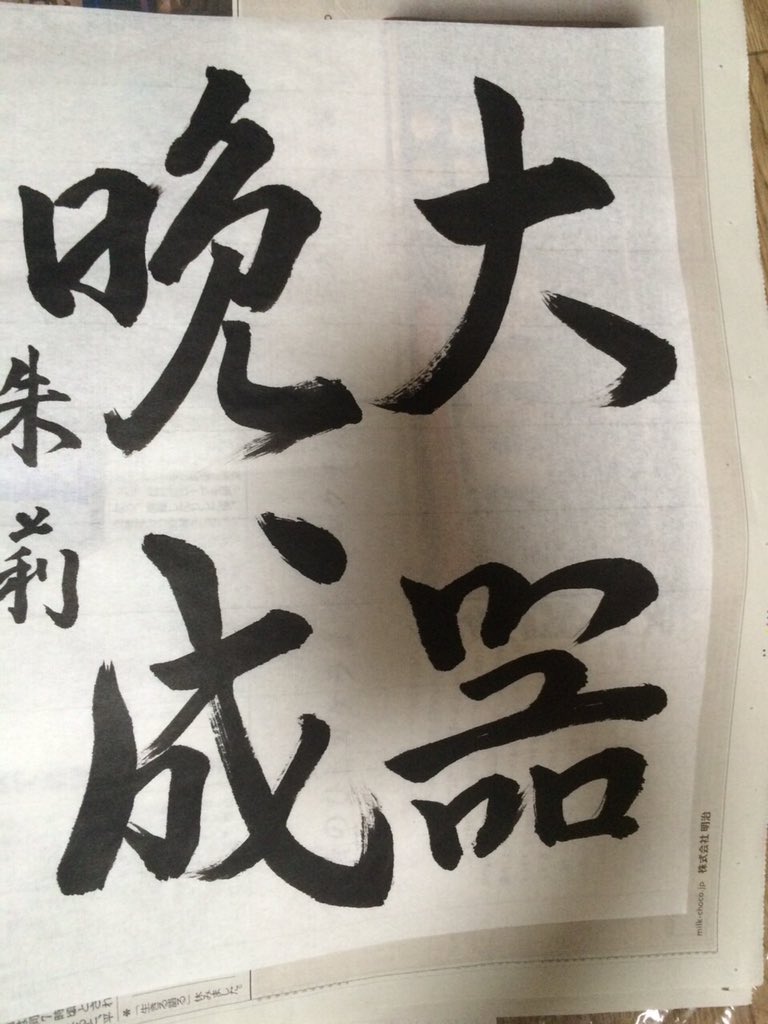 大器
晩成
朱莉
株式会社 明治
milk-choco.jp